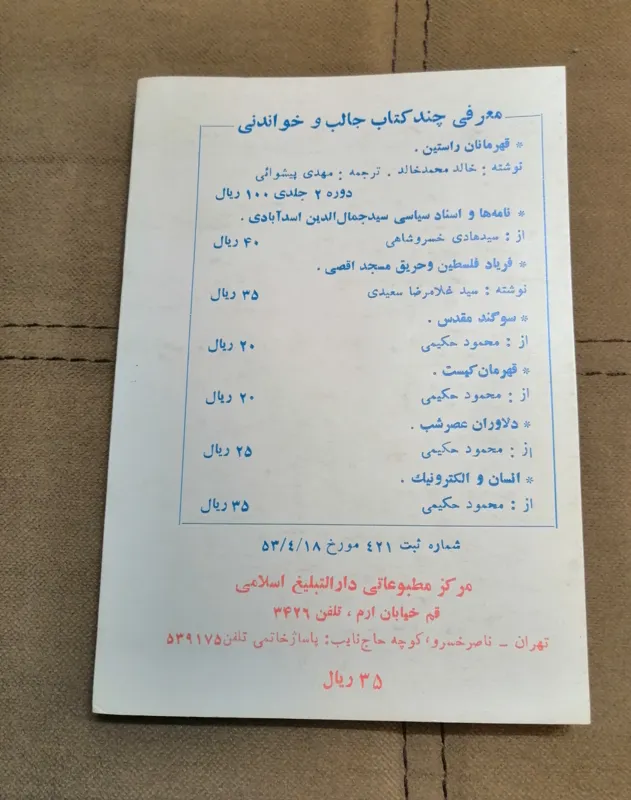 معرفی چند کتاب جالب و خواندنی
* قهرمانان راستین .
نوشته : خالد محمدخالد . ترجمه : مهدی پیشوائی
دوره ۲ جلدی ۱۰۰ ریال
* نامه‌ها و اسناد سیاسی سیدجمال‌الدین اسدآبادی .
از : سیدهادی خسروشاهی ۴۰ ریال
* فریاد فلسطین وحریق مسجد اقصی .
نوشته : سید غلامرضا سعیدی ۳۵ ریال
* سوگند مقدس .
از : محمود حکیمی ۲۰ ریال
* قهرمان کیست .
از : محمود حکیمی ۲۰ ریال
* دلاوران عصرشب .
از : محمود حکیمی ۲۵ ریال
* انسان و الکترونیك .
از : محمود حکیمی ۳۵ ریال
شماره ثبت ۴۲۱ مورخ ۵۳/۴/۱۸
مرکز مطبوعاتی دارالتبلیغ اسلامی
قم خیابان ارم ، تلفن ۳۴۲۶
تهران – ناصرخسرو، کوچه حاج‌نایب: پاساژخاتمی تلفن۵۳۹۱۷۵
۳۵ ریال